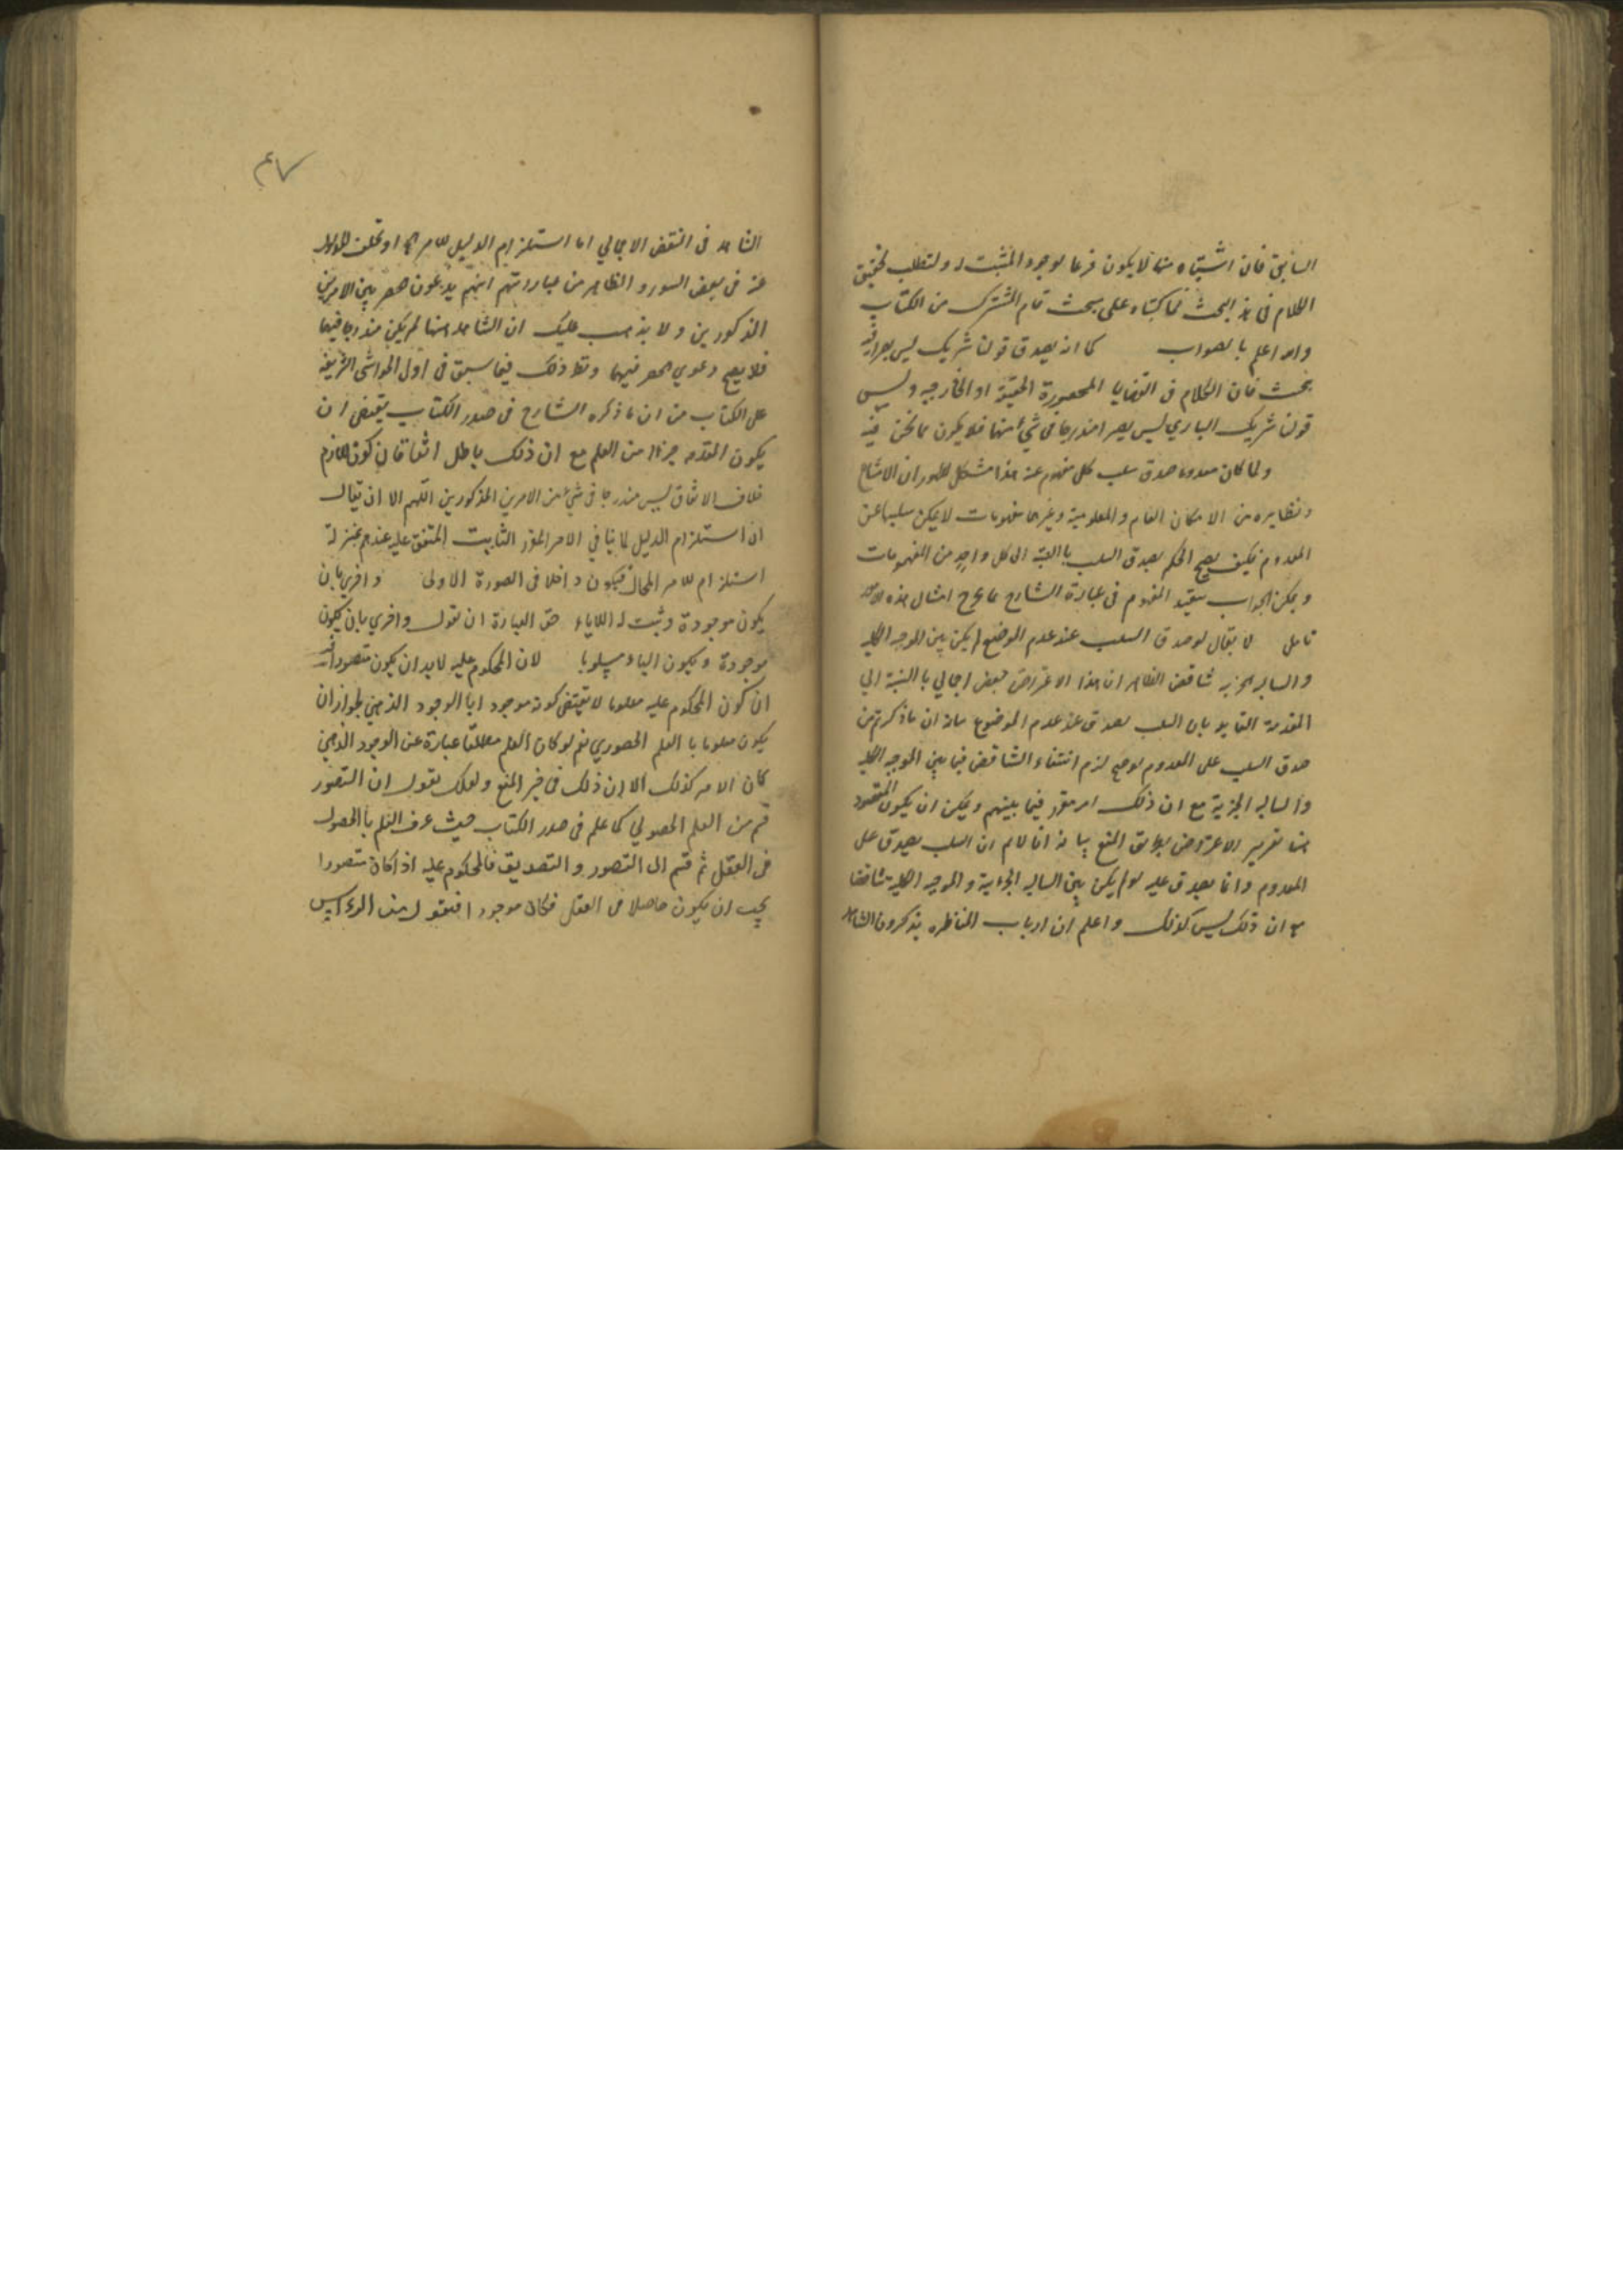 السابق فان اشتباه شيا لا يكون فرعا لوجود المثبت له ولتطلب تحقيق
الكلام في هذا البحث مما كتبناه على بحث تمام المشترك من الكتاب
والله اعلم بالصواب كما انه يصدق قولنا شريك ليس بصيرا فيه
بحث فان الكلام في القضايا المحصورة الحقيقية او الخارجية وليس
قولنا شريك الباري ليس بصيرا مندرجا في شيء منها فلا يكون مما نحن فيه
ولما كان معدوما صدق سلب كل مفهوم عنه هذا مشكل لظهور ان الامتناع
ونظايره من الامكان العام والمعلومية وغيرها مفهومات لا يمكن سلبها عن
المعدوم فكيف يصح الحكم بصدق السلب بالنسبة الى كل واحد من المفهومات
ويمكن الجواب بتقييد المفهوم في عبارة الشارح بما يخرج امثال هذه
تامل لا يقال لو صدق السلب عند عدم الموضوع لم يكن بين الموجبة الكلية
والسالبة الجزئية تناقض الظاهر ان هذا الاعتراض نقض اجمالي بالنسبة الى
المقدمة القايلة بان السلب يصدق عند عدم الموضوع بيانه ان ما ذكرتم من
صدق السلب على المعدوم لو صح لزم انتفاء التناقض فيما بين الموجبة الكلية
والسالبة الجزئية مع ان ذلك امر مقرر فيما بينهم ويمكن ان يكون المقصود
هنا تقرير الاعتراض بطريق المنع بيانه انا لا نم ان السلب يصدق على
المعدوم وانما يصدق عليه لو لم يكن بين السالبة الجزئية والموجبة الكلية تناقضا
مع ان ذلك ليس كذلك واعلم ان ارباب المناظره يذكرون الشاهد
٤٧
الشاهد في النقض الاجمالي اما استلزام الدليل للامر المح او تخلف المدلول
عنه في بعض الصور والظاهر من عباراتهم انهم يدعون حصره بين الامرين
المذكورين ولا يذهب عليك ان الشاهد هنا لم يكن مندرجا فيهما
فلا يصح دعوى الحصر فيهما ونظير ذلك فيما سبق في اول الحواشي الشريفة
على الكتاب من ان ما ذكره الشارح في صدر الكتاب يقتضي ان
يكون المقدمه جزءا من العلم مع ان ذلك باطل اتفاقا فان كون اللازم
خلاف الاتفاق ليس مندرجا في شيء من الامرين المذكورين اللهم الا ان يقال
ان استلزام الدليل لما ينافي الامر المقرر الثابت المتفق عليه عندهم بمنزلة
استلزام للامر المحال فيكون داخلا في الصورة الاولى واخرى بان
يكون موجودة ويثبت له اللاباء حق العبارة ان نقول واخرى بان يكون
موجودة ويكون الباء مسلوبا لان المحكوم عليه لابد ان يكون متصورا فيه
ان كون المحكوم عليه معلوما لا يقتضي كونه موجودا بالوجود الذهني لجواز ان
يكون معلوما بالعلم الحضوري نعم لو كان العلم مطلقا عبارة عن الوجود الذهني
كان الامر كذلك الا ان ذلك في حيز المنع ولعلك تقول ان التصور
قسم من العلم الحصولي كما علم في صدر الكتاب حيث عرف العلم بالحصول
في العقل ثم قسم الى التصور والتصديق فالمحكوم عليه اذا كان متصورا
يجب ان يكون حاصلا في العقل فكان موجودا فنقول